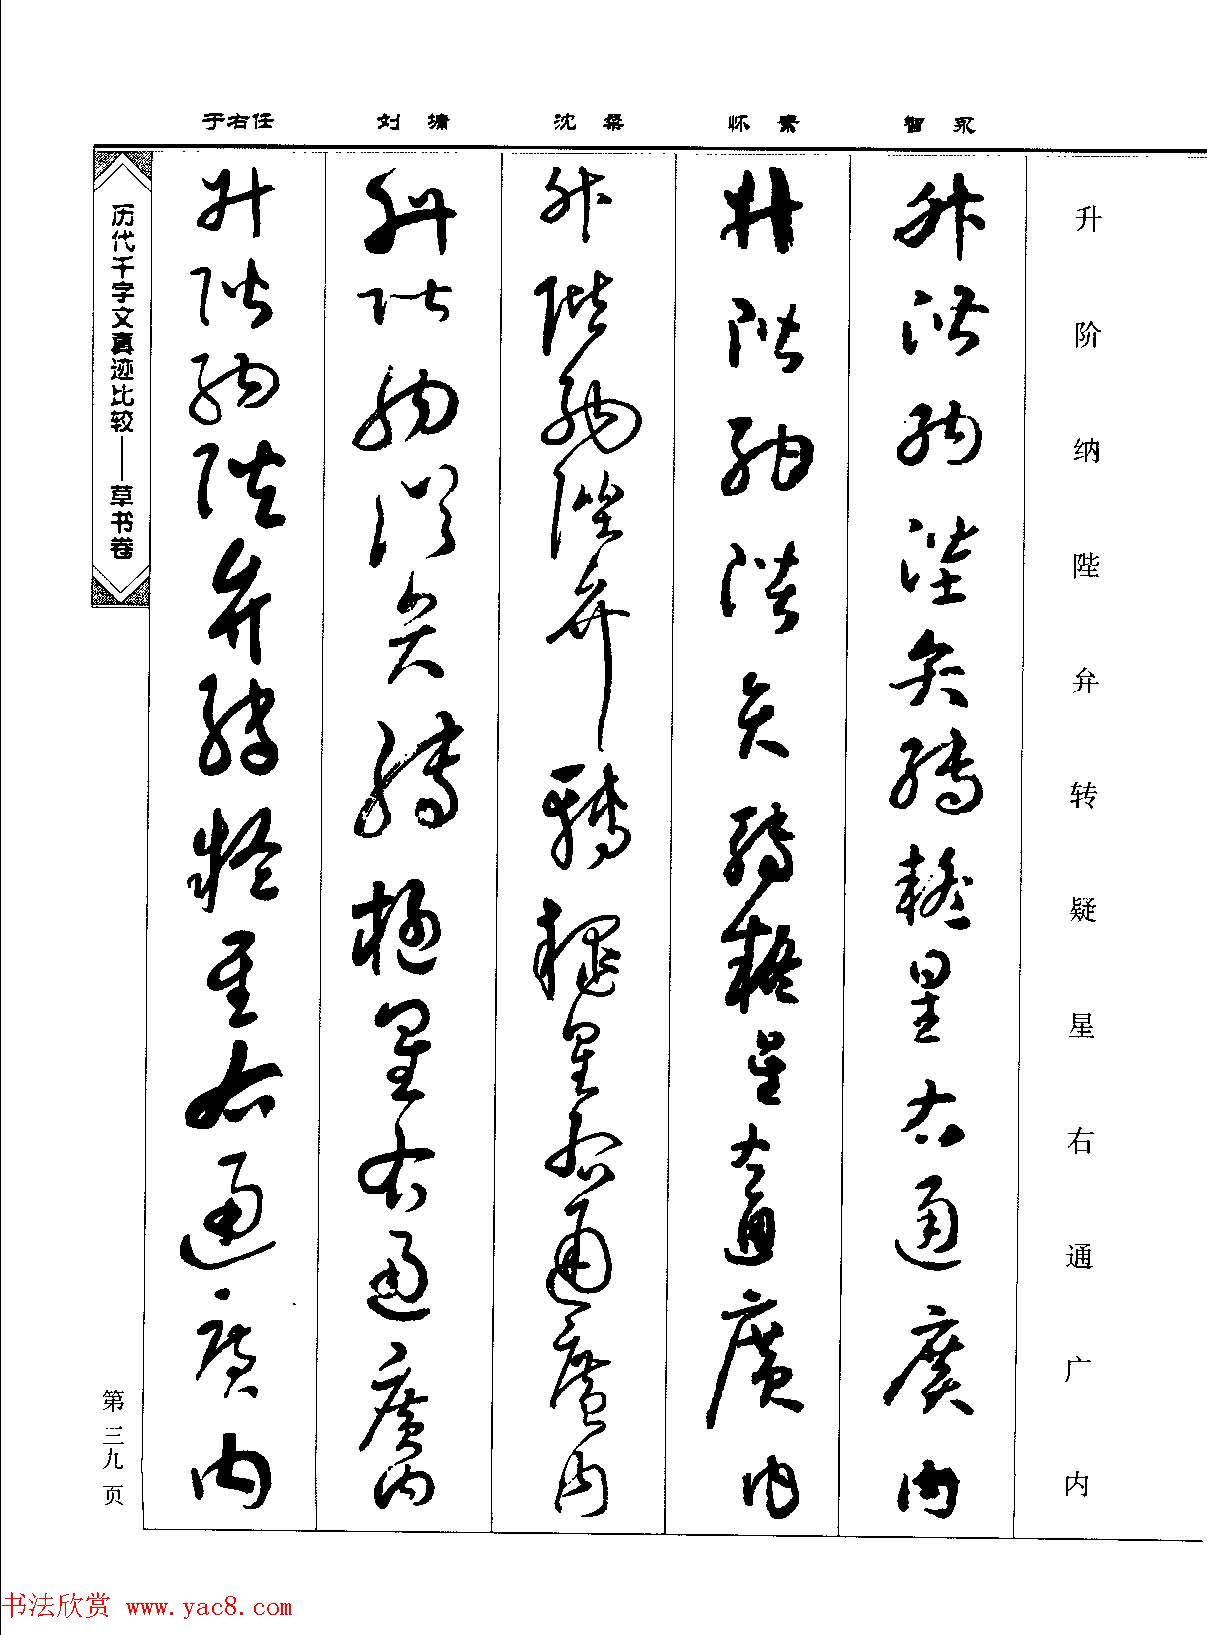 智永
怀素
沈粲
刘墉
于右任
升阶纳陛弁转疑星右通广内
升階納陛弁轉疑星右通廣内
升階納陛弁轉疑星右通廣内
升階納陛弁轉疑星右通廣内
升階納陛弁轉疑星右通廣内
升階納陛弁轉疑星右通廣内
历代千字文真迹比较——草书卷
第三九页
书法欣赏 www.yac8.com